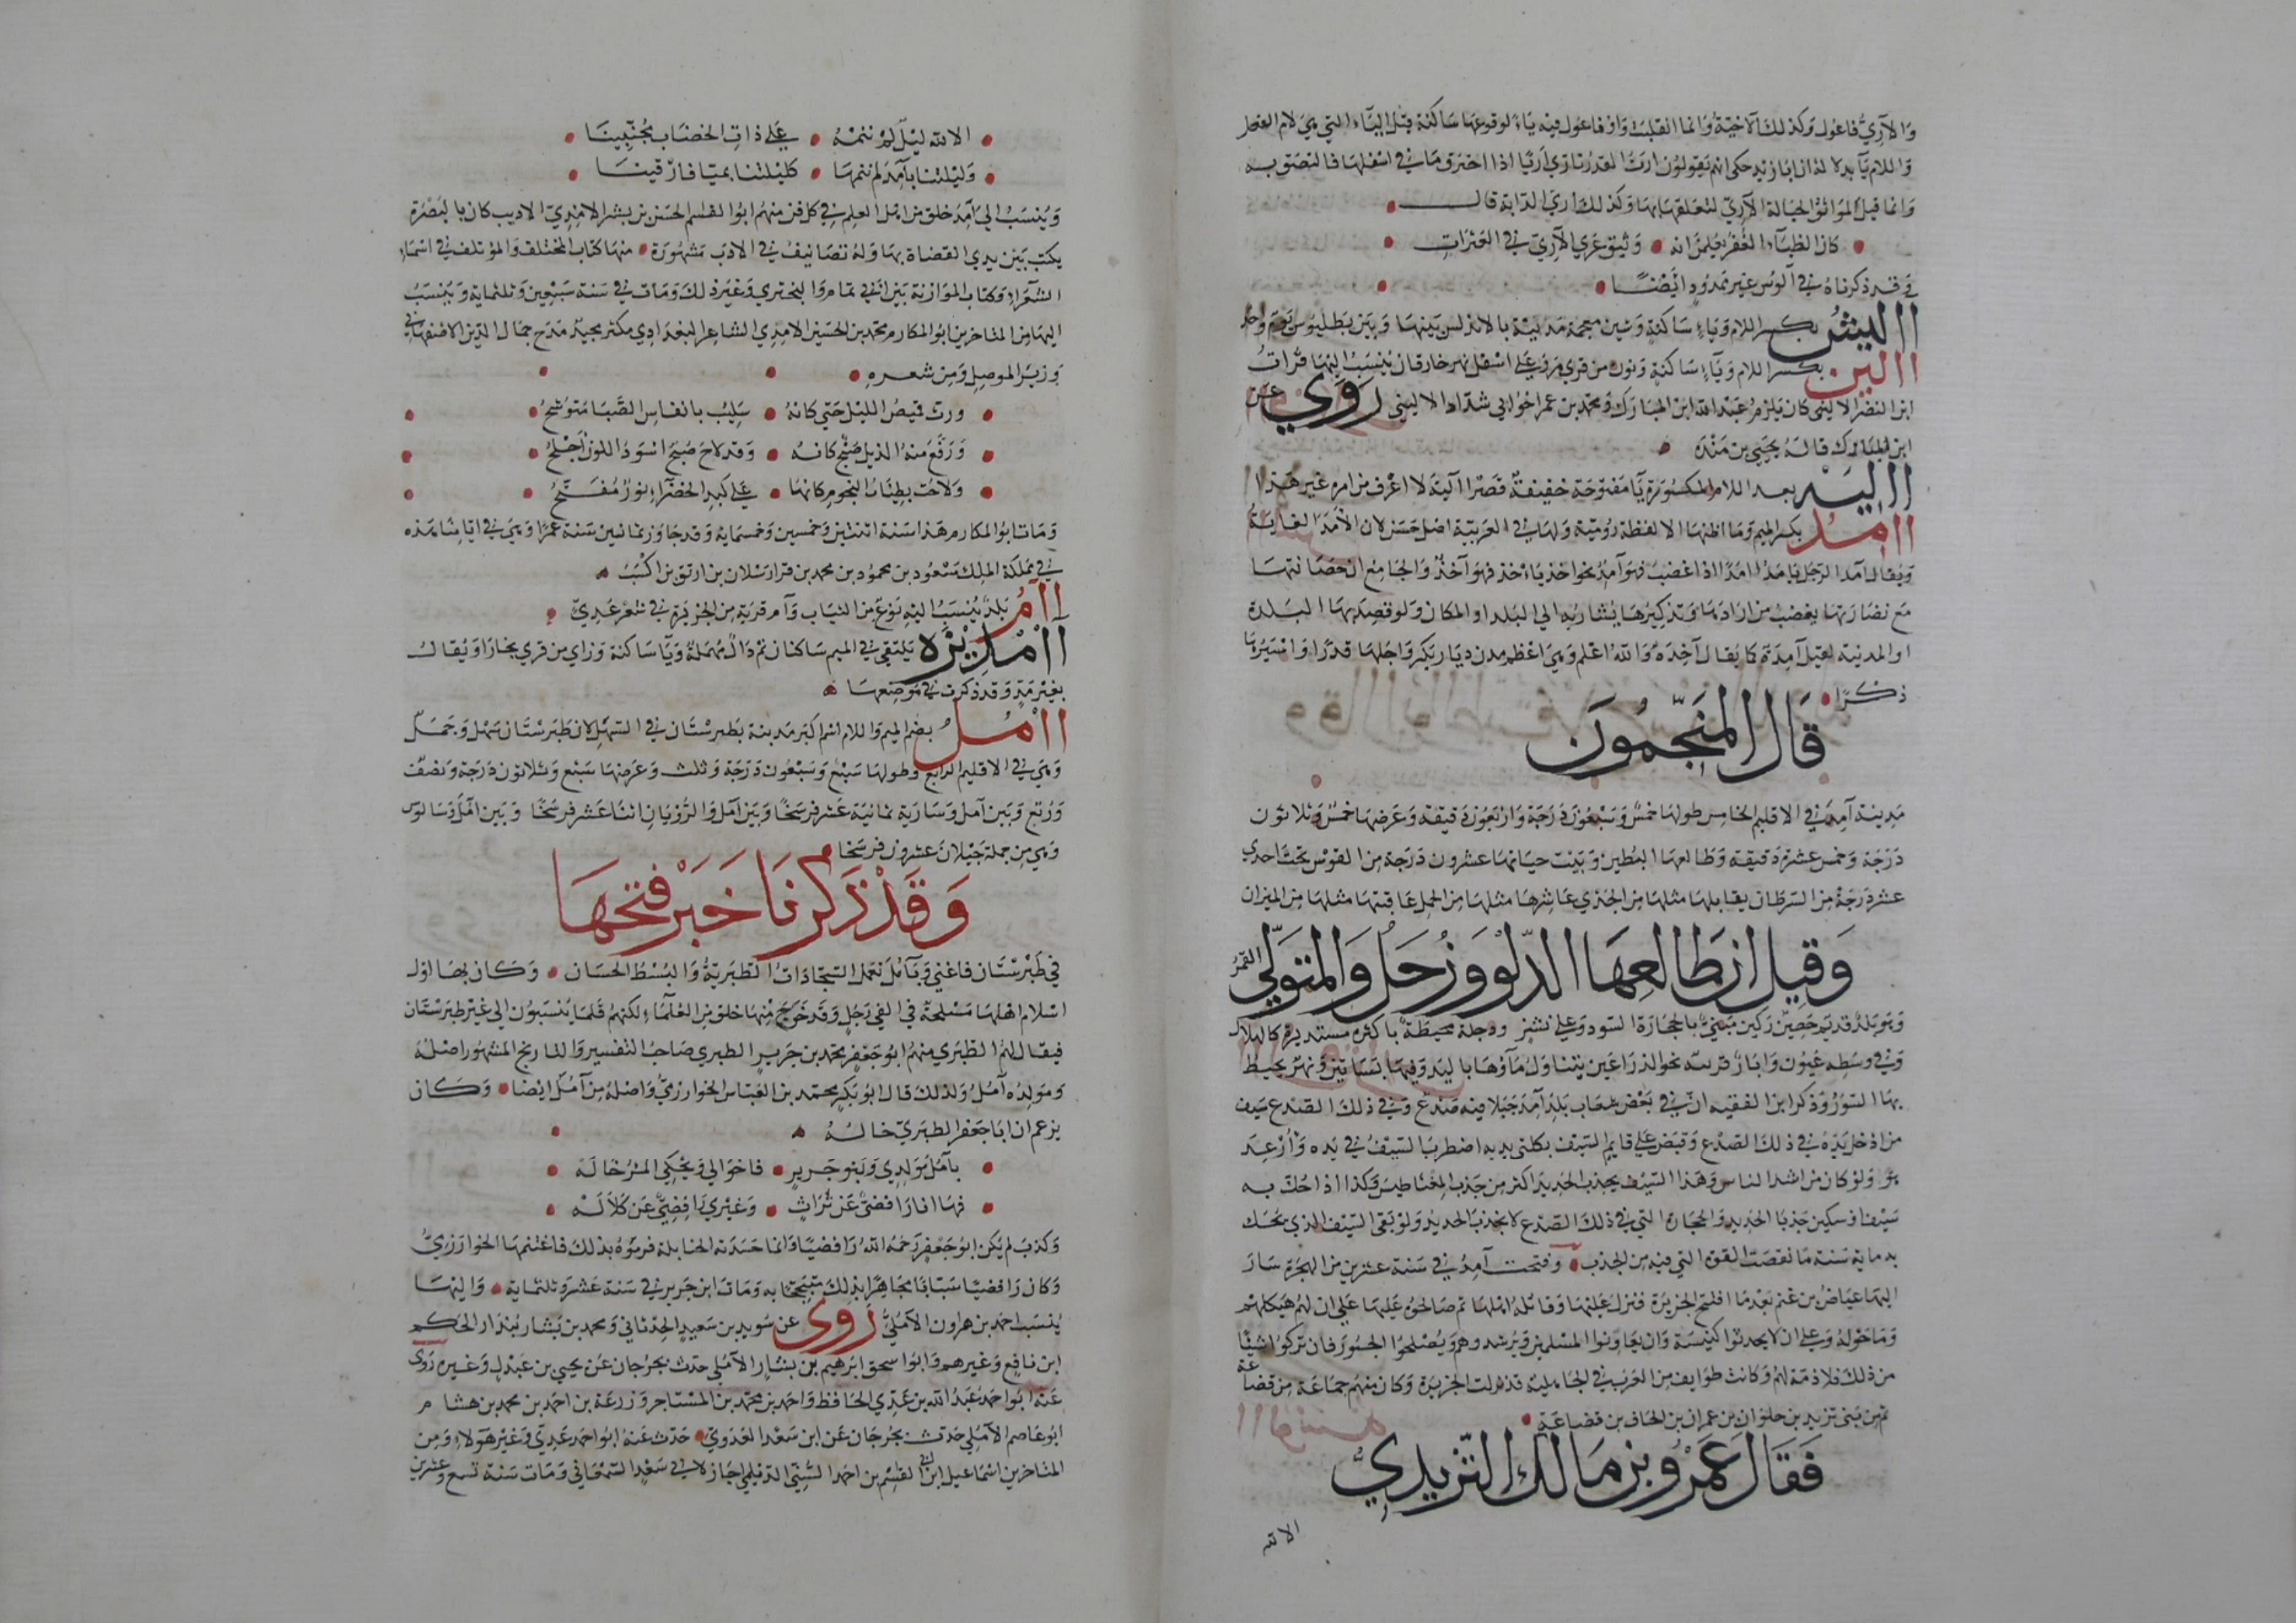 والآري فاعول وكذلك الآخية وانما انقلبت واو فاعول فيه ياء لوقوعها ساكنة قبل الياء التي هي لام الفعل
واللام ياء بدلا لذا ان ابا زيد حكى انهم يقولون ارت القدر تاري اريا اذا احترق ما في اسفلها فالتصق به
وانما قيل لمواثق الحبالة الآري لتعلقها بها وكذلك اري الدابة قال
كان الظباء العفر يعلمن انه وثيق عري الآري في العثرات
وقد ذكرناه في آلوس غير ممدود ايضا
االيش بكسر اللام وياء ساكنة وشين معجمة مدينة بالاندلس بينها وبين بطليوس يوم واحد
االين بكسر اللام وياء ساكنة ونون من قري مرو على اسفل نهر خارقان ينسب اليها فرات
ابن النضر الاليني كان يلزم عبد الله ابن المبارك ومحمد بن عمر اخو ابي شداد الاليني روي عن
ابن المبارك قاله يحيى بن منده
االيه بعد اللام المكسورة يا مفتوحة خفيفة قصر االية لا اعرف من امره غير هذا
اامد بكسر الميم وما اظنها الا لفظة رومية ولها في العربية اصل حسن لان الامد الغاية
ويقال امد الرجل يامد امدا اذا غضب فهو آمد نحو اخذ ياخذ فهو آخذ والجامع ان حصانتها
مع نضارتها يغضب من ارادها وتذكيرها يشار به الي البلد او المكان ولو قصد بها البلدة
او المدينة لقيل آمدة كما يقال آخذة والله اعلم وهي اعظم مدن ديار بكر واجلها قدرا واشهرها
ذكرا
قال المنجمون
مدينة آمد في الاقليم الخامس طولها خمس وسبعون درجة واربعون دقيقة وعرضها خمس وثلاثون
درجة وخمس عشرة دقيقة وطالعها البطين وبيت حياتها عشرون درجة من القوس تحت احدي
عشر درجة من السرطان يقابلها مثلها من الجدي عاشرها مثلها من الحمل عاقبتها مثلها من الميزان
وقيل ان طالعها الدلو وزحل والمتولي القمر
وهو بلد قديم حصين ركين مبني بالحجارة السود وعلى نشز ودجلة محيطة باكثره مستديرة كالهلال
وفي وسطه عيون وابار قريبة نحو الذراعين يتناول ماوها باليد وفيها بساتين ونهر يحيط
بها السور وذكر ابن الفقيه ان في بعض شعاب بلد آمد جبلا فيه صدع وفي ذلك الصدع سيف
من ادخل يده في ذلك الصدع وقبض على قائم السيف بكلتي يديه اضطرب السيف في يده وارعد
هو ولو كان من اشد الناس وهذا السيف يجذب الحديد اكثر من جذب المغناطيس وكذا اذا حك به
سيف او سكين جذبا الحديد والحجارة التي في ذلك الصدع لا تجذب الحديد ولو بقي السيف الذي يحك
به ماية سنة ما نقصت القوة التي فيه من الجذب وفتحت آمد في سنة عشرين من الهجرة سار
اليها عياض بن غنم بعدما افتتح الجزيرة فنزل عليها وقاتله اهلها ثم صالحوه عليها على ان لهم هيكلهم
وما حوله وعلى ان لا يحدثوا كنيسة وان يعاونوا المسلمين ويرشدوهم ويصلحوا الجسور فان تركوا شيئا
من ذلك فلا ذمة لهم وكانت طوايف من العرب في الجاهلية قد نزلت الجزيرة وكان منهم جماعة من قضاعة
ثم من بني تزيد بن حلوان بن عمران بن الحاف بن قضاعة
فقال عمرو بن مالك التزيدي
الا لله
الا لله ليل لم ننمه على ذات الخضاب مجنبينا
وليلتنا بآمد لم ننمها كليلتنا بميافارقينا
وينسب الي آمد خلق من اهل العلم في كل فن منهم ابو القاسم الحسن بن بشر الامدي الاديب كان بالبصرة
يكتب بين يدي القضاة بها وله تصانيف في الادب مشهورة منها كتاب المختلف والمؤتلف في اسماء
الشعراء وكتاب الموازنة بين ابي تمام والبحتري وغير ذلك ومات في سنة سبعين وثلثماية وينسب
اليها من المتاخرين ابو المكارم محمد بن الحسين الامدي الشاعر البغدادي مكثر مجيد مدح جمال الدين الاصفهاني
وزير الموصل ومن شعره
ورث قميص الليل حتي كانه سليب بانفاس الصبا متوشح
ورفع منه الذيل صبح كانه وقد لاح صبح اسود اللون اجلح
ولاحت بطيات النجوم كانها على كبد الخضراء نور مفتح
ومات ابو المكارم هذا سنة اثنتين وخمسين وخمسماية وقد جاوز ثمانين سنة عمرا وهي في ايامنا هذه
في مملكة الملك مسعود بن محمود بن محمد بن قرا ارسلان بن ارتق بن اكسب
اامر بلد ينسب اليه نوع من الثياب وآم قرية من الجزيرة في شعر عدي
اامديزه يلتقي في الميم ساكنان ثم دال مهملة ويا ساكنة وزاي من قري بخارا ويقال
بغير مد وقد ذكرت في موضعها
اامل بضم الميم واللام اسم اكبر مدينة بطبرستان في السهل لان طبرستان سهل وجبل
وهي في الاقليم الرابع وطولها سبع وسبعون درجة وثلث وعرضها سبع وثلاثون درجة ونصف
وربع وبين آمل وسارية ثمانية عشر فرسخا وبين آمل والرويان اثنا عشر فرسخا وبين آمل وسالوس
وهي من جملة جيلان عشرون فرسخا
وقد ذكرنا خبر فتحها
في طبرستان فاغني وبآمل تعمل السجادات الطبرية والبسط الحسان وكان بها اول
اسلام اهلها مسلحة في الفي رجل وقد خرج منها خلق من العلماء لكنهم قلما ينسبون الي غير طبرستان
فيقال لهم الطبري منهم ابو جعفر محمد بن جرير الطبري صاحب التفسير والتاريخ المشهور اصله
ومولده آمل ولذلك قال ابو بكر محمد بن العباس الخوارزمي واصله من آمل ايضا وكان
يزعم ان ابا جعفر الطبري خاله
بآمل مولدي وبنو جرير فاخوالي ويحكي المرء خاله
فها انا رافضي عن تراث وغيري رافضي عن كلاله
وكذب لم يكن ابو جعفر رحمه الله رافضيا وانما حسدته الحنابلة فرموه بذلك فاغتنمها الخوارزمي
وكان رافضيا سبابا مجاهرا بذلك متبجحا به ومات ابن جرير في سنة عشر وثلثماية واليها
ينسب احمد بن هارون الآملي روي عن سويد بن سعيد الحدثاني ومحمد بن بشار بندار الحكم
ابن نافع وغيرهم وابو اسحق ابرهيم بن بشار الآملي حدث بجرجان عن يحيى بن عبدك وغيره روي
عنه ابو احمد عبد الله بن عدي الحافظ واحمد بن محمد بن المستاجر وزرعة بن احمد بن محمد بن هشام
ابو عاصم الآملي حدث بجرجان عن ابن سعد العدوي حدث عنه ابو احمد عدي وغير هولاء ومن
المتاخرين اسماعيل ابن ابي القاسم بن احمد السني الديلمي اجاز لابي سعد السمعاني ومات سنة تسع وعشرين